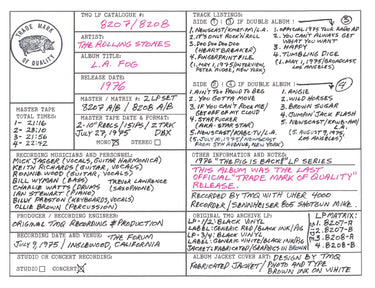 TRADE MARK OF QUALITY
TMQ LP CATALOGUE #:
8207/8208
ARTIST:
THE ROLLING STONES
ALBUM TITLE:
L.A. FOG
RELEASE DATE:
1976
MASTER / MATRIX #: 2 LP SET
8207 A/B / 8208 A/B
MASTER TAPE
TOTAL TIMES:
1- 21:16
2- 28:10
3- 21:56
4- 22:42
MASTER TAPE DATE & FORMAT:
2-10" REELS/15 IPS/2 TRK
JULY 27, 1975 DBX
MONO STEREO
TRACK LISTINGS:
SIDE 1 OF DOUBLE ALBUM:
1. NEWSCAST/HONKY
2. IT'S ONLY ROCK N ROLL
3. DOO DOO DOO DOO
(HEARTBREAKER)
4. FINGERPRINT FILE
SIDE OF DOUBLE ALBUM: 3
TOUR RADIO AD
2. YOU CAN'T ALWAYS GET
WHAT YOU WANT
3. HAPPY
4. TUMBLING DICE
(MAY 1, 1975/BROADCAST,
LOS ANGELES)
SIDE OF DOUBLE ALBUM: 4
1. AIN'T TOO PROUD TO BEG
2. YOU GOTTA MOVE
3. IF YOU CAN'T ROCK ME/
GET OFF OF MY CLOUD
4. STARFUCKER
(AKA: STAR STAR)
FROM 5TH AVENUE, NEW YORK)
1. ANGIE
2. WILD HORSES
3. BROWN SUGAR
4. JUMPIN' JACK FLASH
LOS ANGELES)
RECORDING MUSICIANS AND PERSONNEL:
MICK JAGGER (VOCALS, GUITAR, HARMONICA)
KEITH RICHARDS (GUITAR, VOCALS)
RONNIE WOOD (GUITAR, VOCALS)
BILL WYMAN (BASS) TREVOR LAWRENCE
CHARLIE WATTS (DRUMS) (SAXOPHONE)
IAN STEWART (PIANO)
BILLY PRESTON (KEYBOARDS, VOCALS)
OLLIE BROWN (PERCUSSION)
OTHER INFORMATION AND NOTES:
1976 "THE PIG IS BACK" LP SERIES
THIS ALBUM WAS THE LAST
OFFICIAL "TRADE MARK OF QUALITY"
RELEASE.
RECORDED BY TMQ WITH UHER 4000
RECORDER/SENNHEISER 805 SHOTGUN MIKE.
PRODUCER / RECORDING ENGINEER:
ORIGINAL TMQ RECORDING & PRODUCTION
RECORDING DATE AND VENUE: THE FORUM
JULY 9, 1975 / INGLEWOOD, CALIFORNIA
STUDIO OR CONCERT RECORDING:
STUDIO CONCERT
ORIGINAL TMQ ARCHIVE LP:
LP-1/2: BLACK VINYL
LABEL: GENERIC RED/BLACK INK/PIG
LP-3/4: BLACK VINYL
LABEL: GENERIC WHITE/BLACK INK/PIG
LP MATRIX:
1. 8207-A
2. 8207-B
3. 8208-A
4. 8208-B
ALBUM JACKET COVER ART: DESIGN BY TMQ
FABRICATED JACKET/ PHOTO AND TYPE
BROWN INK ON WHITE